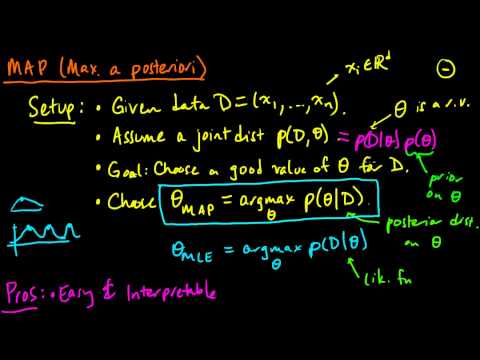 MAP (Max. a posteriori)
xᵢ∈ℝᵈ
Setup: • Given data D = (x₁, ..., xₙ).
θ is a r.v.
• Assume a joint dist p(D,θ) = p(D|θ) p(θ)
• Goal: Choose a good value of θ for D.
prior on θ
• Choose θ_MAP = argmax_θ p(θ|D).
posterior dist. on θ
θ_MLE = argmax_θ p(D|θ)
lik. fn
Pros: • Easy & Interpretable